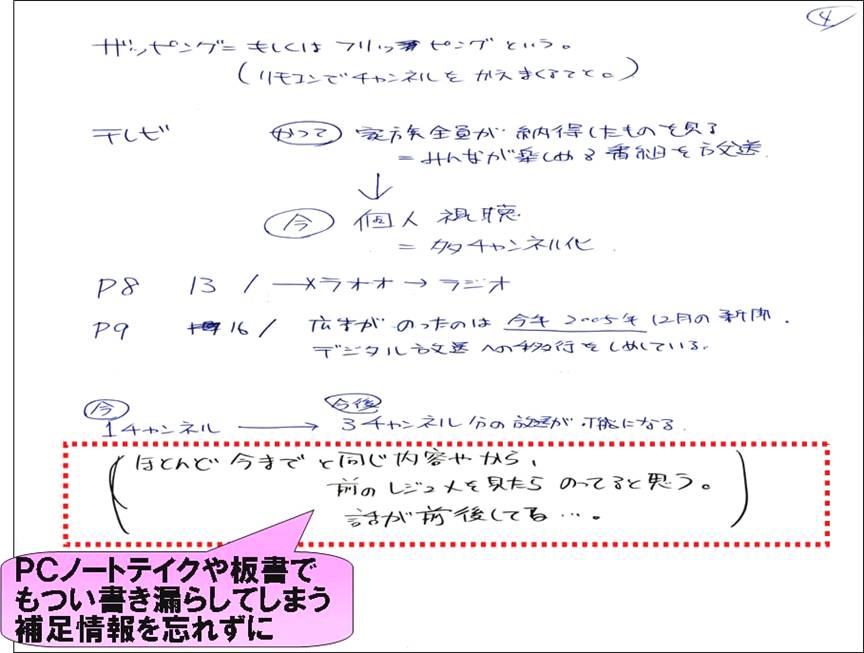 4
ザッピング= もしくは フリッピング という。
(リモコンでチャンネルを かえまくること。)
テレビ かつて 家族全員が 納得したものを見る
= みんなが楽しめる番組を放送.
↓
今 個人 視聴
= 多チャンネル化.
P8 13 / ―メラオオ → ラジオ
P9 16 / 広告が のったのは 今年 2005年 12月の新聞.
デジタル放送への移行をしめしている.
今 今後
1チャンネル → 3チャンネル分の放送が可能になる.
(ほとんど 今までと同じ内容やから、
前のレジュメを見たら のってると思う。
話が前後してる…。)
PCノートテイクや板書で
もつい書き漏らしてしまう
補足情報を忘れずに